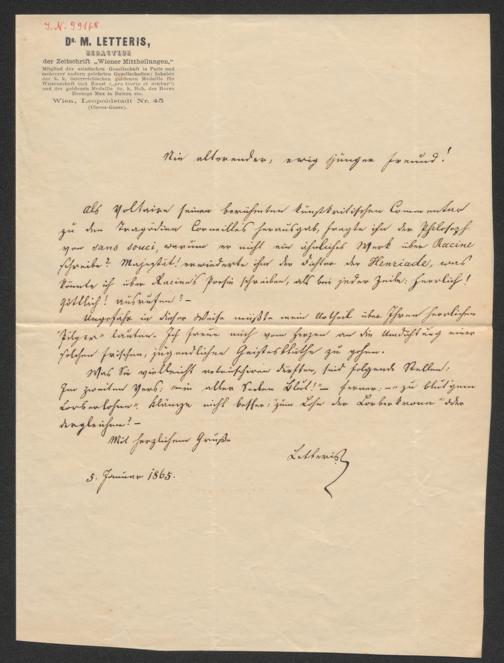 J. N. 99178
Dr. M. LETTERIS,
REDACTEUR
der Zeitschrift „Wiener Mittheilungen,"
Mitglied der asiatischen Gesellschaft in Paris und
mehrerer andern gelehrten Gesellschaften; Inhaber
der k. k. österreichischen goldenen Medaille für
Wissenschaft und Kunst
und der goldenen Medaille Sr. k. Hoh. des Herrn
Herzogs Max in Baiern etc.
Wien, Leopoldstadt Nr. 45
Nie alternder, ewig junger Freund!
Als Voltaire seinen berühmten kunstkritischen Commentar
zu den Tragödien Corneilles herausgab, fragte ihn der Philosoph
von sans souci, warum er nicht ein ähnliches Werk über Racine
schreibe? Majestät! erwiederte ihm der Dichter der Henriade, was
könnte ich über Racine's Poesie schreiben, als bei jeder Zeile: Herrlich!
Göttlich! ausrufen? –
Ungefähr in dieser Weise müßte mein Urtheil über Ihren herrlichen
"Pilger" lauten. Ich freue mich vom Herzen an die
solchen frischen, jugendlichen Geistesblüthe zu gehen.
Was Sie vielleicht dürften, sind folgende Stellen:
Im zweiten Vers: ein alter Blut!" – ferner: – "zu blut'gem
Lorberlohne". klänge nicht besser: "zum Lohn der Lorberkrone" oder
dergleichen? –
Mit herzlichem Gruße
Letteris
5. Januar 1865.